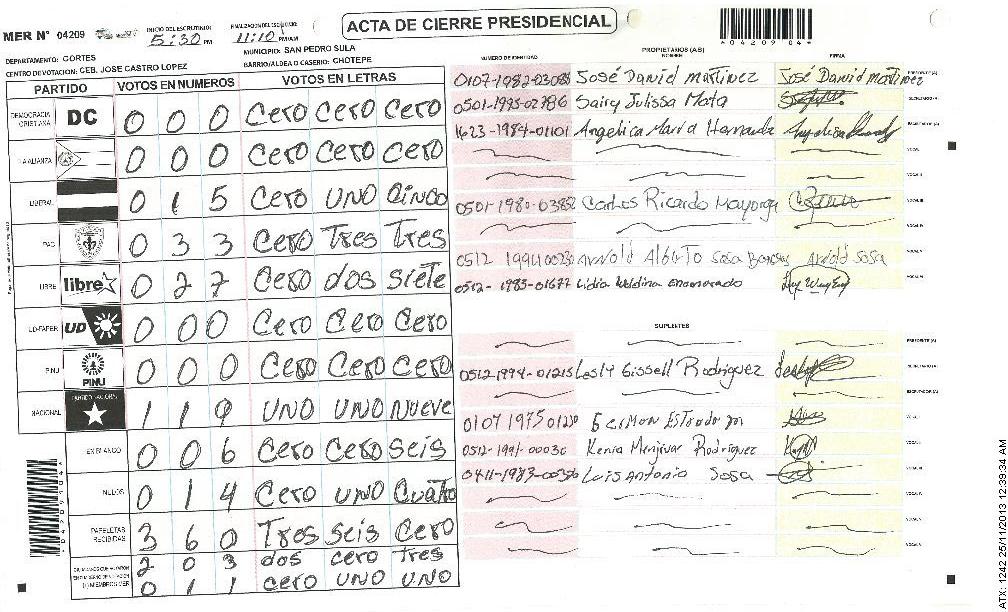 ACTA DE CIERRE PRESIDENCIAL
MER N° 04209
INICIO DEL ESCRUTINIO
5:30 PM
11:10 PM/AM
*04209 04*
DEPARTAMENTO: CORTES
MUNICIPIO: SAN PEDRO SULA
CENTRO DE VOTACION: CEB. JOSE CASTRO LOPEZ
BARRIO/ALDEA O CASERIO: CHOTEPE
PARTIDO VOTOS EN NUMEROS VOTOS EN LETRAS
DEMOCRACIA CRISTIANA DC 0 0 0 Cero cero cero
LA ALIANZA 0 0 0 Cero Cero Cero
LIBERAL 0 1 5 Cero UNO Cinco
PAC 0 3 3 Cero Tres Tres
LIBRE libre 0 2 7 Cero dos siete
UD-FAPER UD 0 0 0 Cero Cero Cero
PINU PINU 0 0 0 Cero Cero Cero
NACIONAL PARTIDO NACIONAL 1 1 9 UNO UNO Nueve
EN BLANCO 0 0 6 Cero Cero seis
NULOS 0 1 4 Cero uno Cuatro
PAPELETAS RECIBIDAS 3 6 0 Tres seis Cero
2 0 3 dos cero Tres
0 1 1 cero UNO UNO
NUMERO DE IDENTIDAD PROPIETARIOS (AS) NOMBRE FIRMA
José David Martinez José David martinez PRESIDENTE (A)
0501-1995-02786 Sairy Julissa Mata SECRETARIO (A)
1623-1984-01101 Angelica Maria ESCRUTADOR (A)
VOCAL I
VOCAL II
0501-1980-03852 Carlos Ricardo Mayorga VOCAL III
VOCAL IV
Arnold Alberto Sosa Arnold Sosa VOCAL V
0512-1985-01677 Lidia Enamorado VOCAL VI
SUPLENTES
PRESIDENTE (A)
0512-1994-01215 Lesly Gissell Rodriguez SECRETARIO (A)
ESCRUTADOR (A)
0107 1975 German Estrada VOCAL I
Kenia Menjivar Rodriguez VOCAL II
0411-1983-00356 Luis Antonio Sosa VOCAL III
VOCAL IV
VOCAL V
VOCAL VI
ATX: 1242 25/11/2013 12:39:34 AM